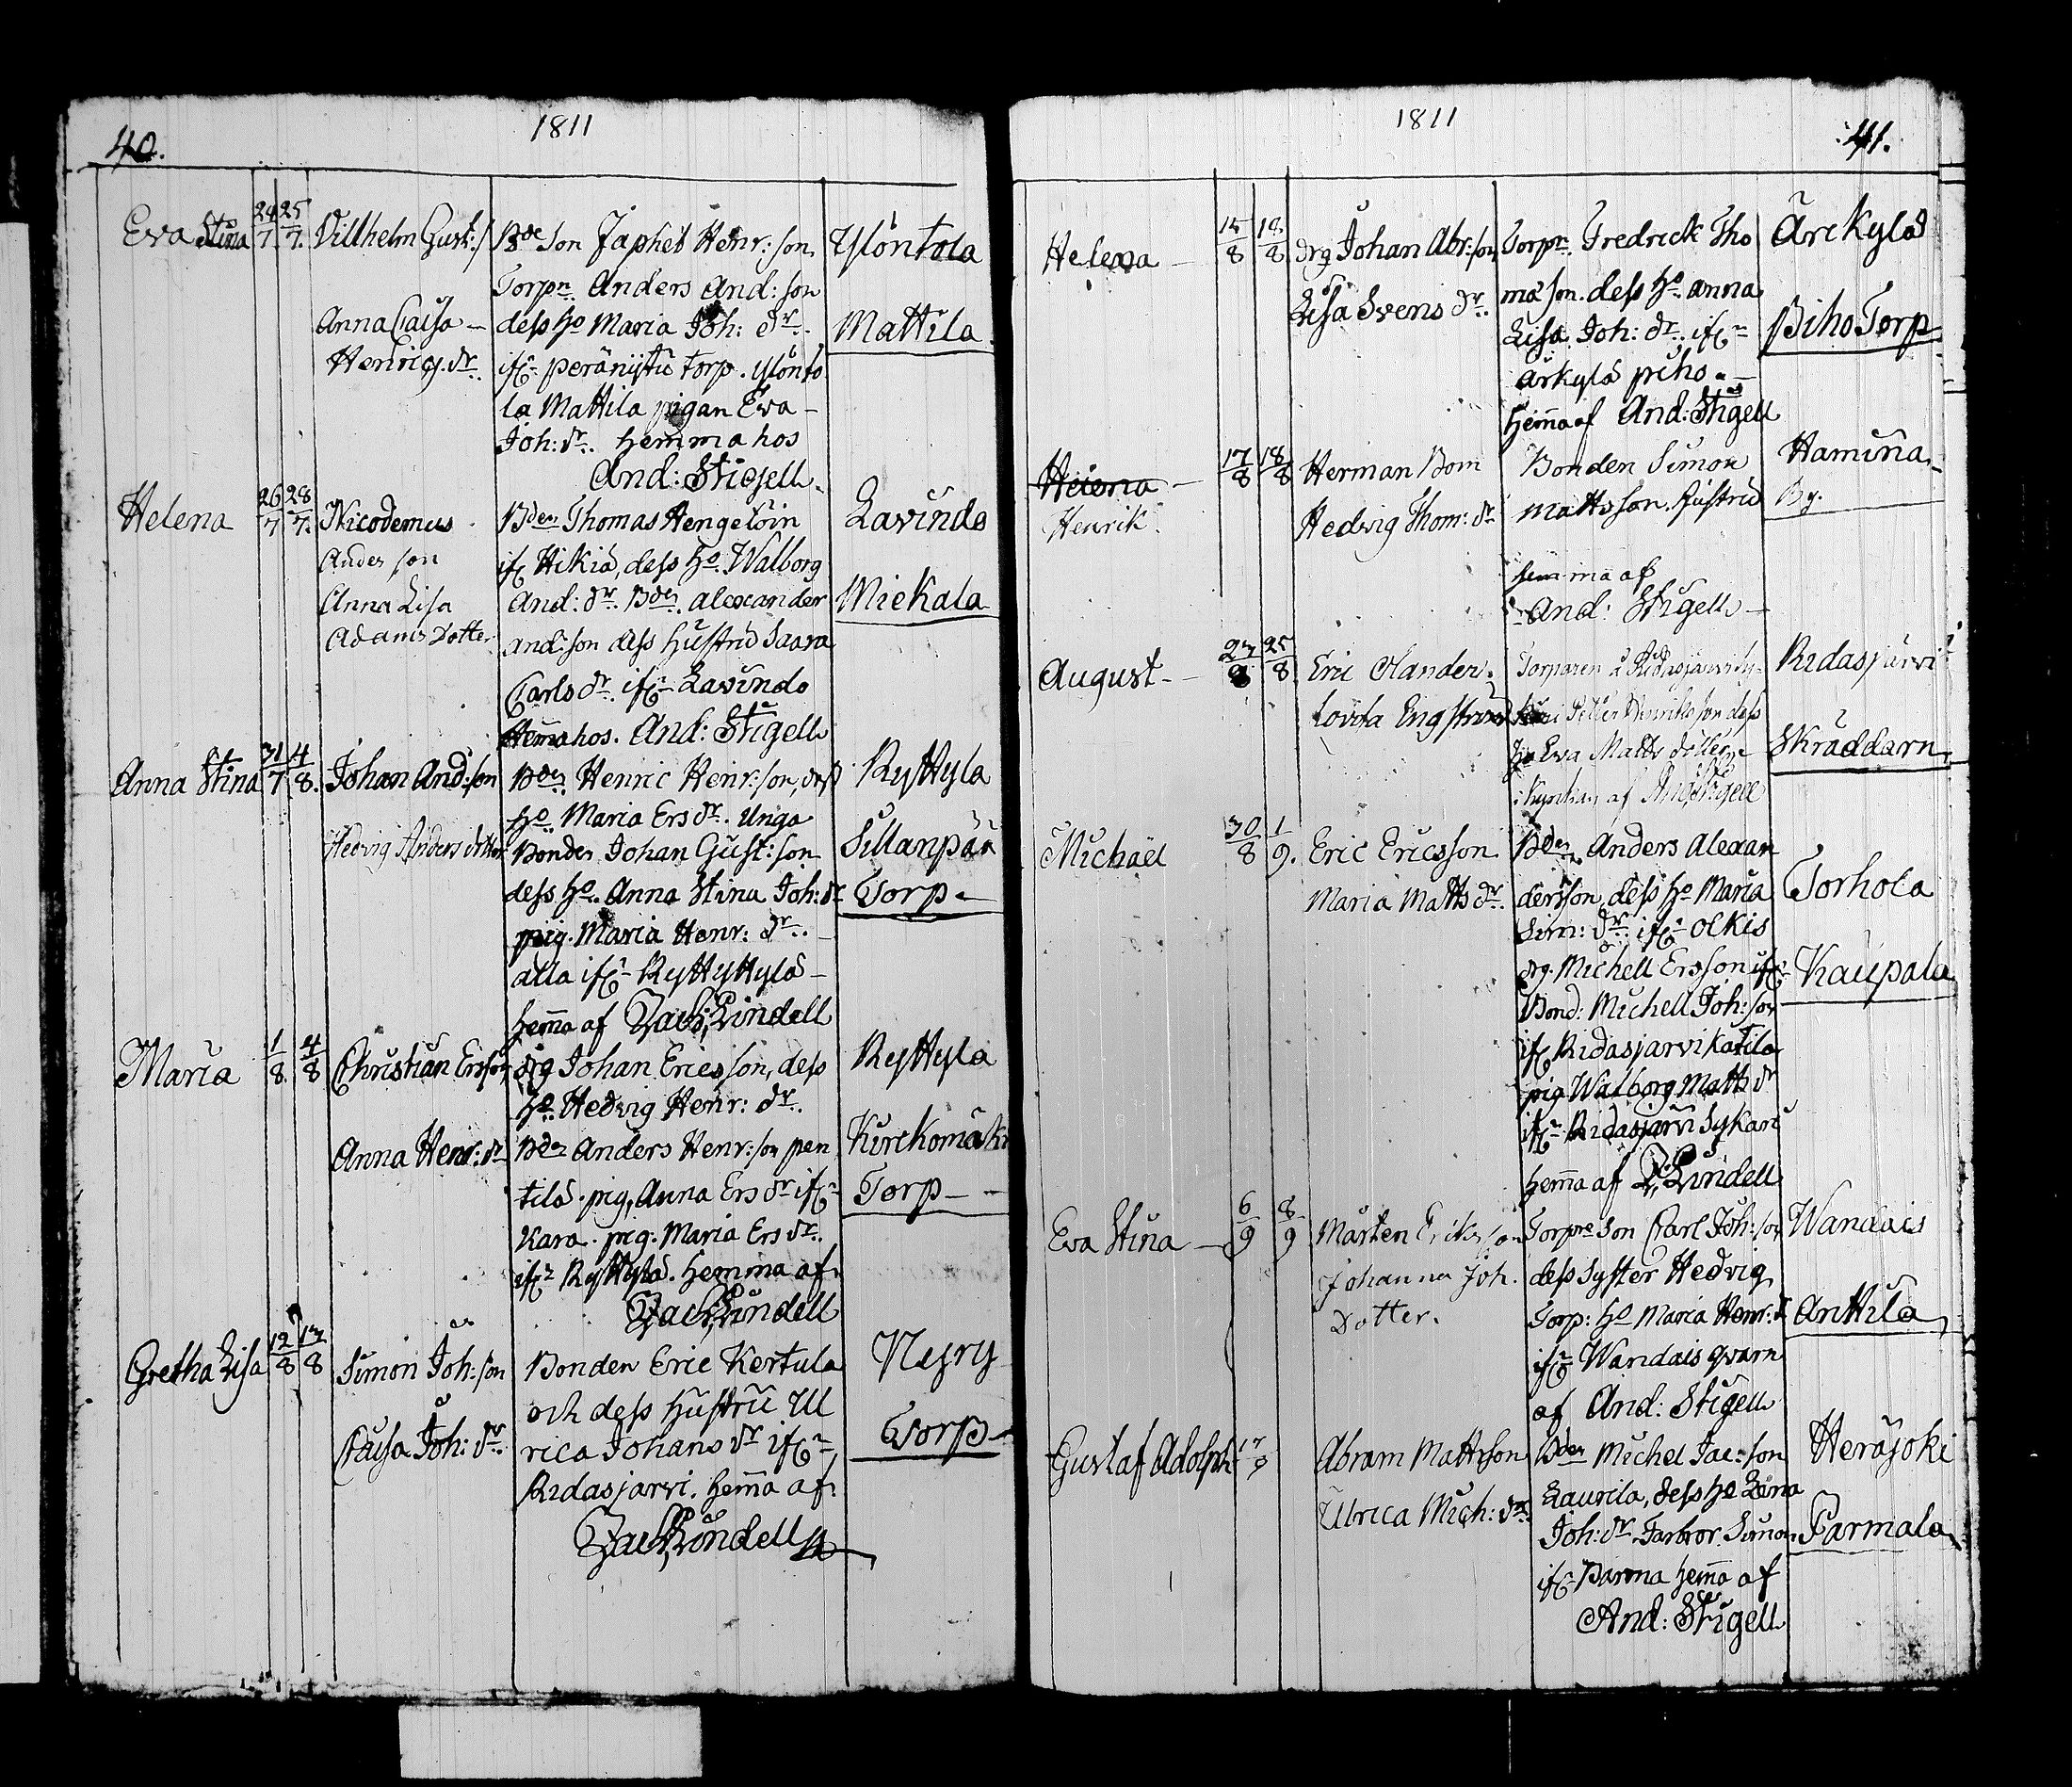 40.
1811
Eva Stina 24/7 25/7. Villhelm Gust:s
Anna Caisa
Henrics. dr.
Bde Son Japhet Henr: son
Torpn. Anders And: son
dess ho Maria Joh: dr.
if. peränijttu torp. ylönto
la Mattila pigan Eva
Joh: dr. hemma hos
And: Stigell.
Ylöntola
Mattila
Helena 26/7 28/7. Nicodemus
Anders son
Anna Lisa
Adams Dotter
Bden Thomas Hengelöin
if Hikiä, dess ho. Walborg
And: dr. Bden. alexander
and: son dess hustru Saara
Carls dr. if Lavindo
hema hos. And: Stigell
Lavindo
Mickala
Anna Stina 31/7 4/8. Johan And:son
Hedvig Anders dotter
Bden Henric Henr: son, dess
ho Maria Ers dr. Unga
Bonden Johan Gust: son
dess ho. Anna Stina Joh: dr
pig. Maria Henr: dr.
alla if RyttyHylä
hema af Zach: Lindell
RyHyla
Sillanpää
Torp
Maria 1/8 4/8 Christian Ersson
Anna Henr: dr
drg Johan Ericsson, dess
ho. Hedvig Henr: dr.
Bden Anders Henr: son pen
tilä. pig, Anna Ers dr if
Kara. pig. Maria Ers dr.
if RyHylä. hemma af
Zach Lindell
RyHyla
Kirckomäki
Torp
Gretha Lisa 12/8 13/8 Simon Joh: son
Caisa Joh: dr.
Bonden Eric Kertula
och dess hustru Ul
rica Johans dr if
Ridasjarvi. hema af
Zach Lindell
Nyry
Torp
1811
41.
Helena 15/8 18/8. drg Johan Abr: son
Lisa Svens dr.
Torpn. Fredrick Tho
mas son. dess ho. anna
Lisa Joh: dr. if
ärkylä piho
hema af And: Stigell
Ärckylä
Biho Torp
Helena 17/8 18/8 Herman Bom
Henrik. Hedvig Thom: dr
Bonden Simon
Mattsson. hustrú
hemma af
And: Stigell
Hamina
By.
August 23/8 25/8. Eric Olander
Lovisa Engström
Torparen Ridasjärvi
Petter Henriksson dess
ho Eva Matts dotter
af And Stigell
Ridasjärvi
Skräddarn
Michael 30/8 1/9. Eric Ericsson
Maria Matts dr.
Bden Anders Alexan
dersson, dess ho Maria
Sim: dr. if olkis
drg. Michell Ersson if
Bond: Michell Joh: son
if Ridasjarvi Katila
pig Walborg Matts dr
if Ridasjarvi Sykari
hema af Z, Lindell
Torhola
Kaupala
Eva Stina 6/9 8/9 Mårten Eriksson
Johanna Joh.
Dotter.
Torpre son Carl Joh: son
dess syster Hedvig
Torp: ho Maria Henr: d
if Wandais qvarn
af And: Stigell
Wandais
Anttila
Gustaf Adolph Abram Mattsson
Ulrica Mich: dr.
Bden Michel Jac: son
Laurila, dess ho Lena
Joh: dr. Farbror Simon
if Parma hema af
And: Stigell
Heräjoki
Parmala